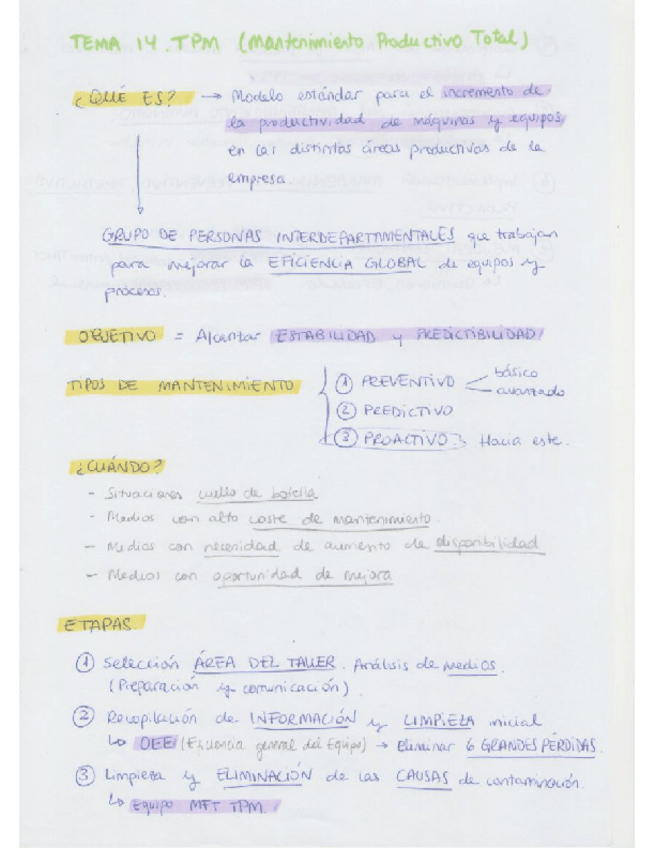 TEMA 14. TPM (Mantenimiento Productivo Total)
¿QUÉ ES? → Modelo estándar para el incremento de
la productividad de máquinas y equipos
en las distintas áreas productivas de la
empresa.
GRUPO DE PERSONAS INTERDEPARTAMENTALES que trabajan
para mejorar la EFICIENCIA GLOBAL de equipos y
procesos.
OBJETIVO = Alcanzar ESTABILIDAD y PREDICTIBILIDAD
TIPOS DE MANTENIMIENTO
① PREVENTIVO
básico
avanzado
② PREDICTIVO
③ PROACTIVO Hacia este.
¿CUÁNDO?
- Situaciones cuello de botella
- Medios con alto coste de mantenimiento
- Medios con necesidad de aumento de disponibilidad
- Medios con oportunidad de mejora
ETAPAS
① Selección ÁREA DEL TALLER. Análisis de medios.
(Preparación y comunicación)
② Recopilación de INFORMACIÓN y LIMPIEZA inicial
↳ OEE (Eficiencia general del Equipo) → Eliminar 6 GRANDES PÉRDIDAS.
③ Limpieza y ELIMINACIÓN de las CAUSAS de contaminación.
↳ Equipo MFT TPM.